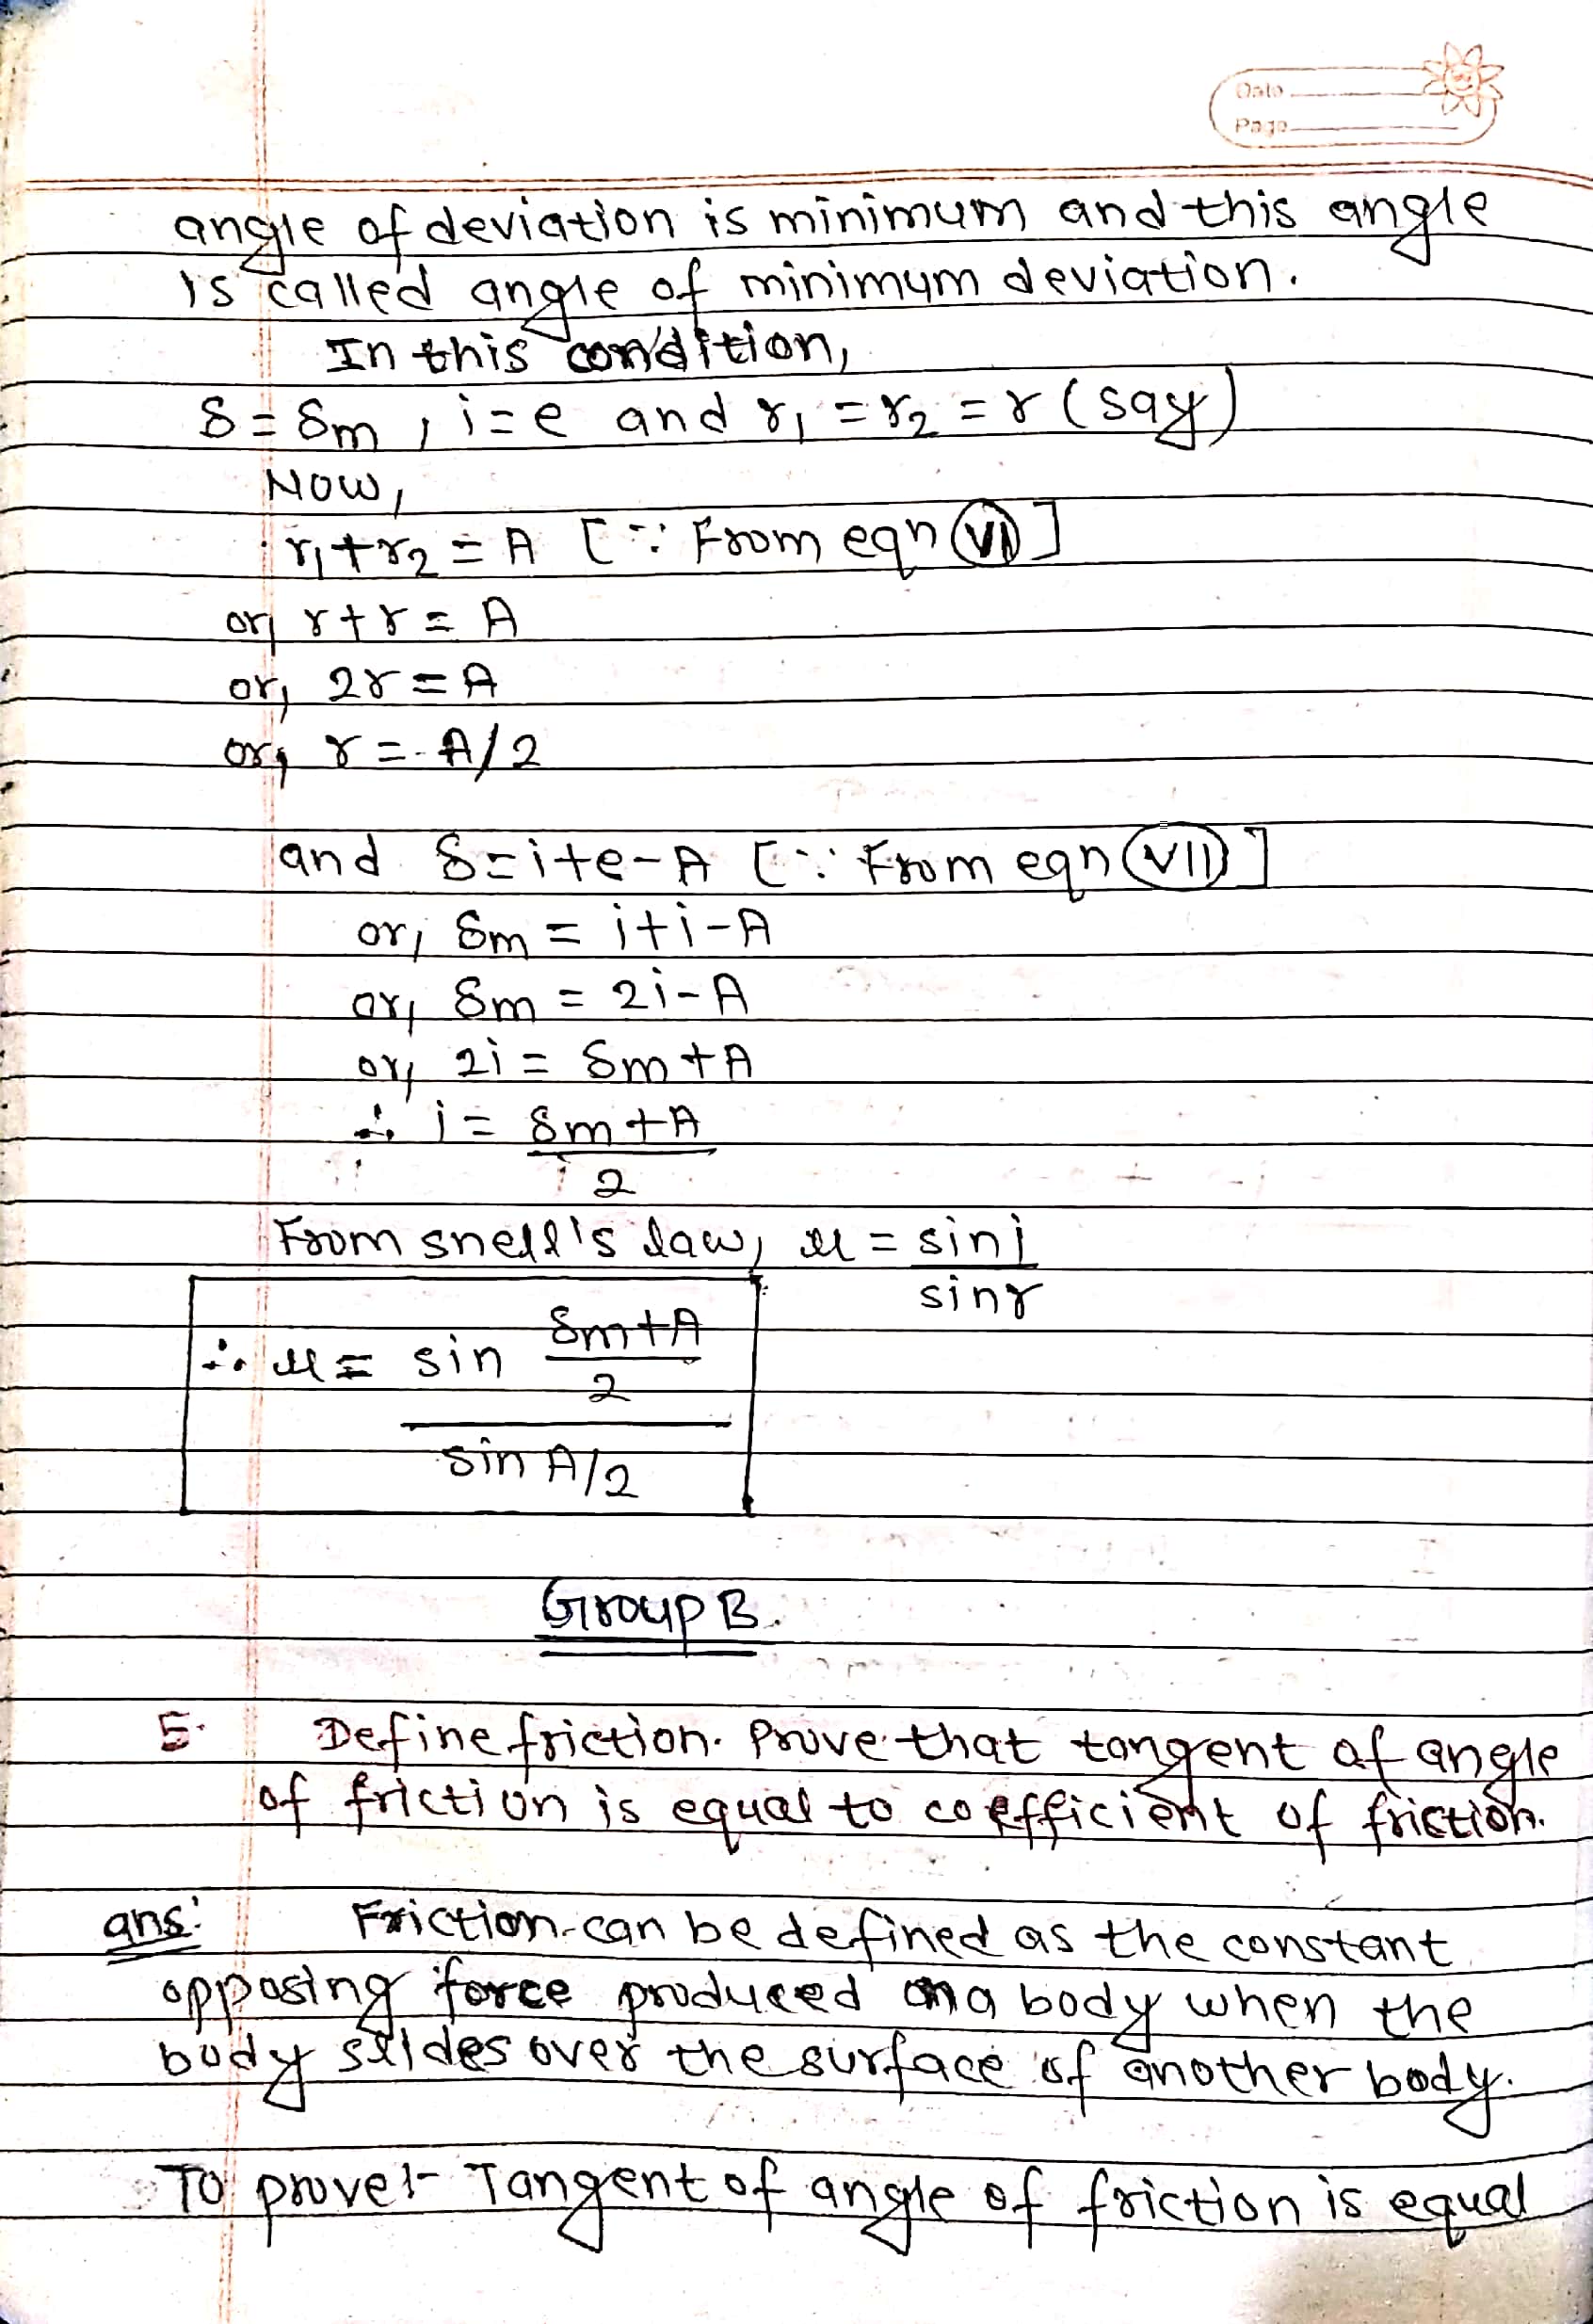 Date
Page
angle of deviation is minimum and this angle
is called angle of minimum deviation.
In this condition,
δ = δm , i = e and r₁ = r₂ = r (say)
Now,
r₁ + r₂ = A [∵ From eqn (VI)]
or, r + r = A
or, 2r = A
or, r = A/2
and δ = i + e - A [∵ From eqn (VII)]
or, δm = i + i - A
or, δm = 2i - A
or, 2i = δm + A
∴ i = δm + A
2
From snell's law, μ = sin i
sin r
∴ μ = sin δm + A
2
sin A/2
Group B.
5. Define friction. Prove that tangent of angle
of friction is equal to coefficient of friction.
ans: Friction can be defined as the constant
opposing force produced on a body when the
body slides over the surface of another body.
To prove:- Tangent of angle of friction is equal